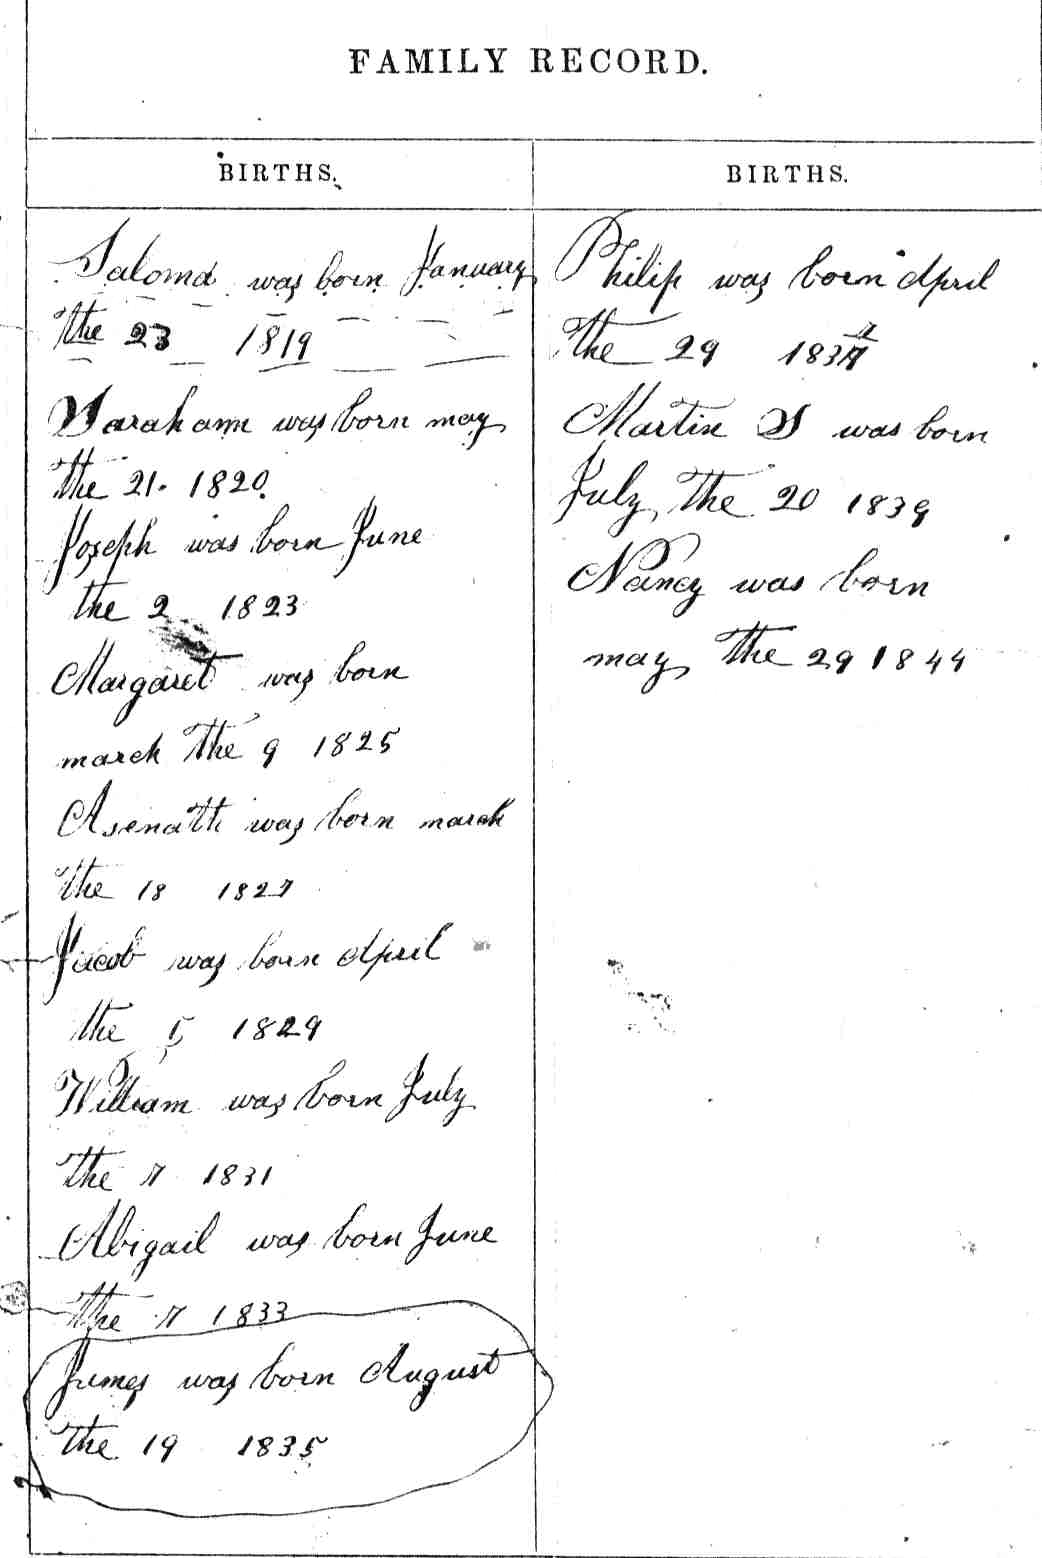 FAMILY RECORD.
BIRTHS.
Saloma was born January
the 23 1819
Sarahann was born may
the 21. 1820.
Joseph was born June
the 2 1823
Margaret was born
march the 9 1825
Asenath was born march
the 18 1827
Jacob was born April
the 5 1829
William was born July
the 7 1831
Abigail was born June
the 7 1833
James was born August
the 19 1835
BIRTHS.
Philip was born April
the 29 1837
Martin S was born
July the 20 1839
Nancy was born
may the 29 1844